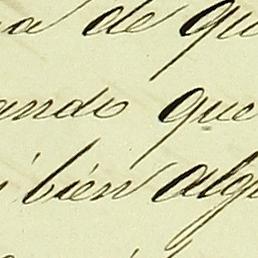 a de qu
ando que
i bien alg